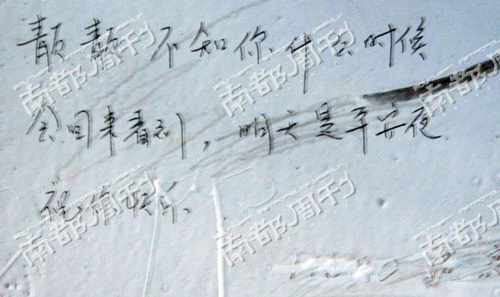 不知你什么时候
南都周刊 南都周刊 南都周刊
会回来看到，明天是平安夜
祝你快乐
南都周刊 南都周刊 南都周刊